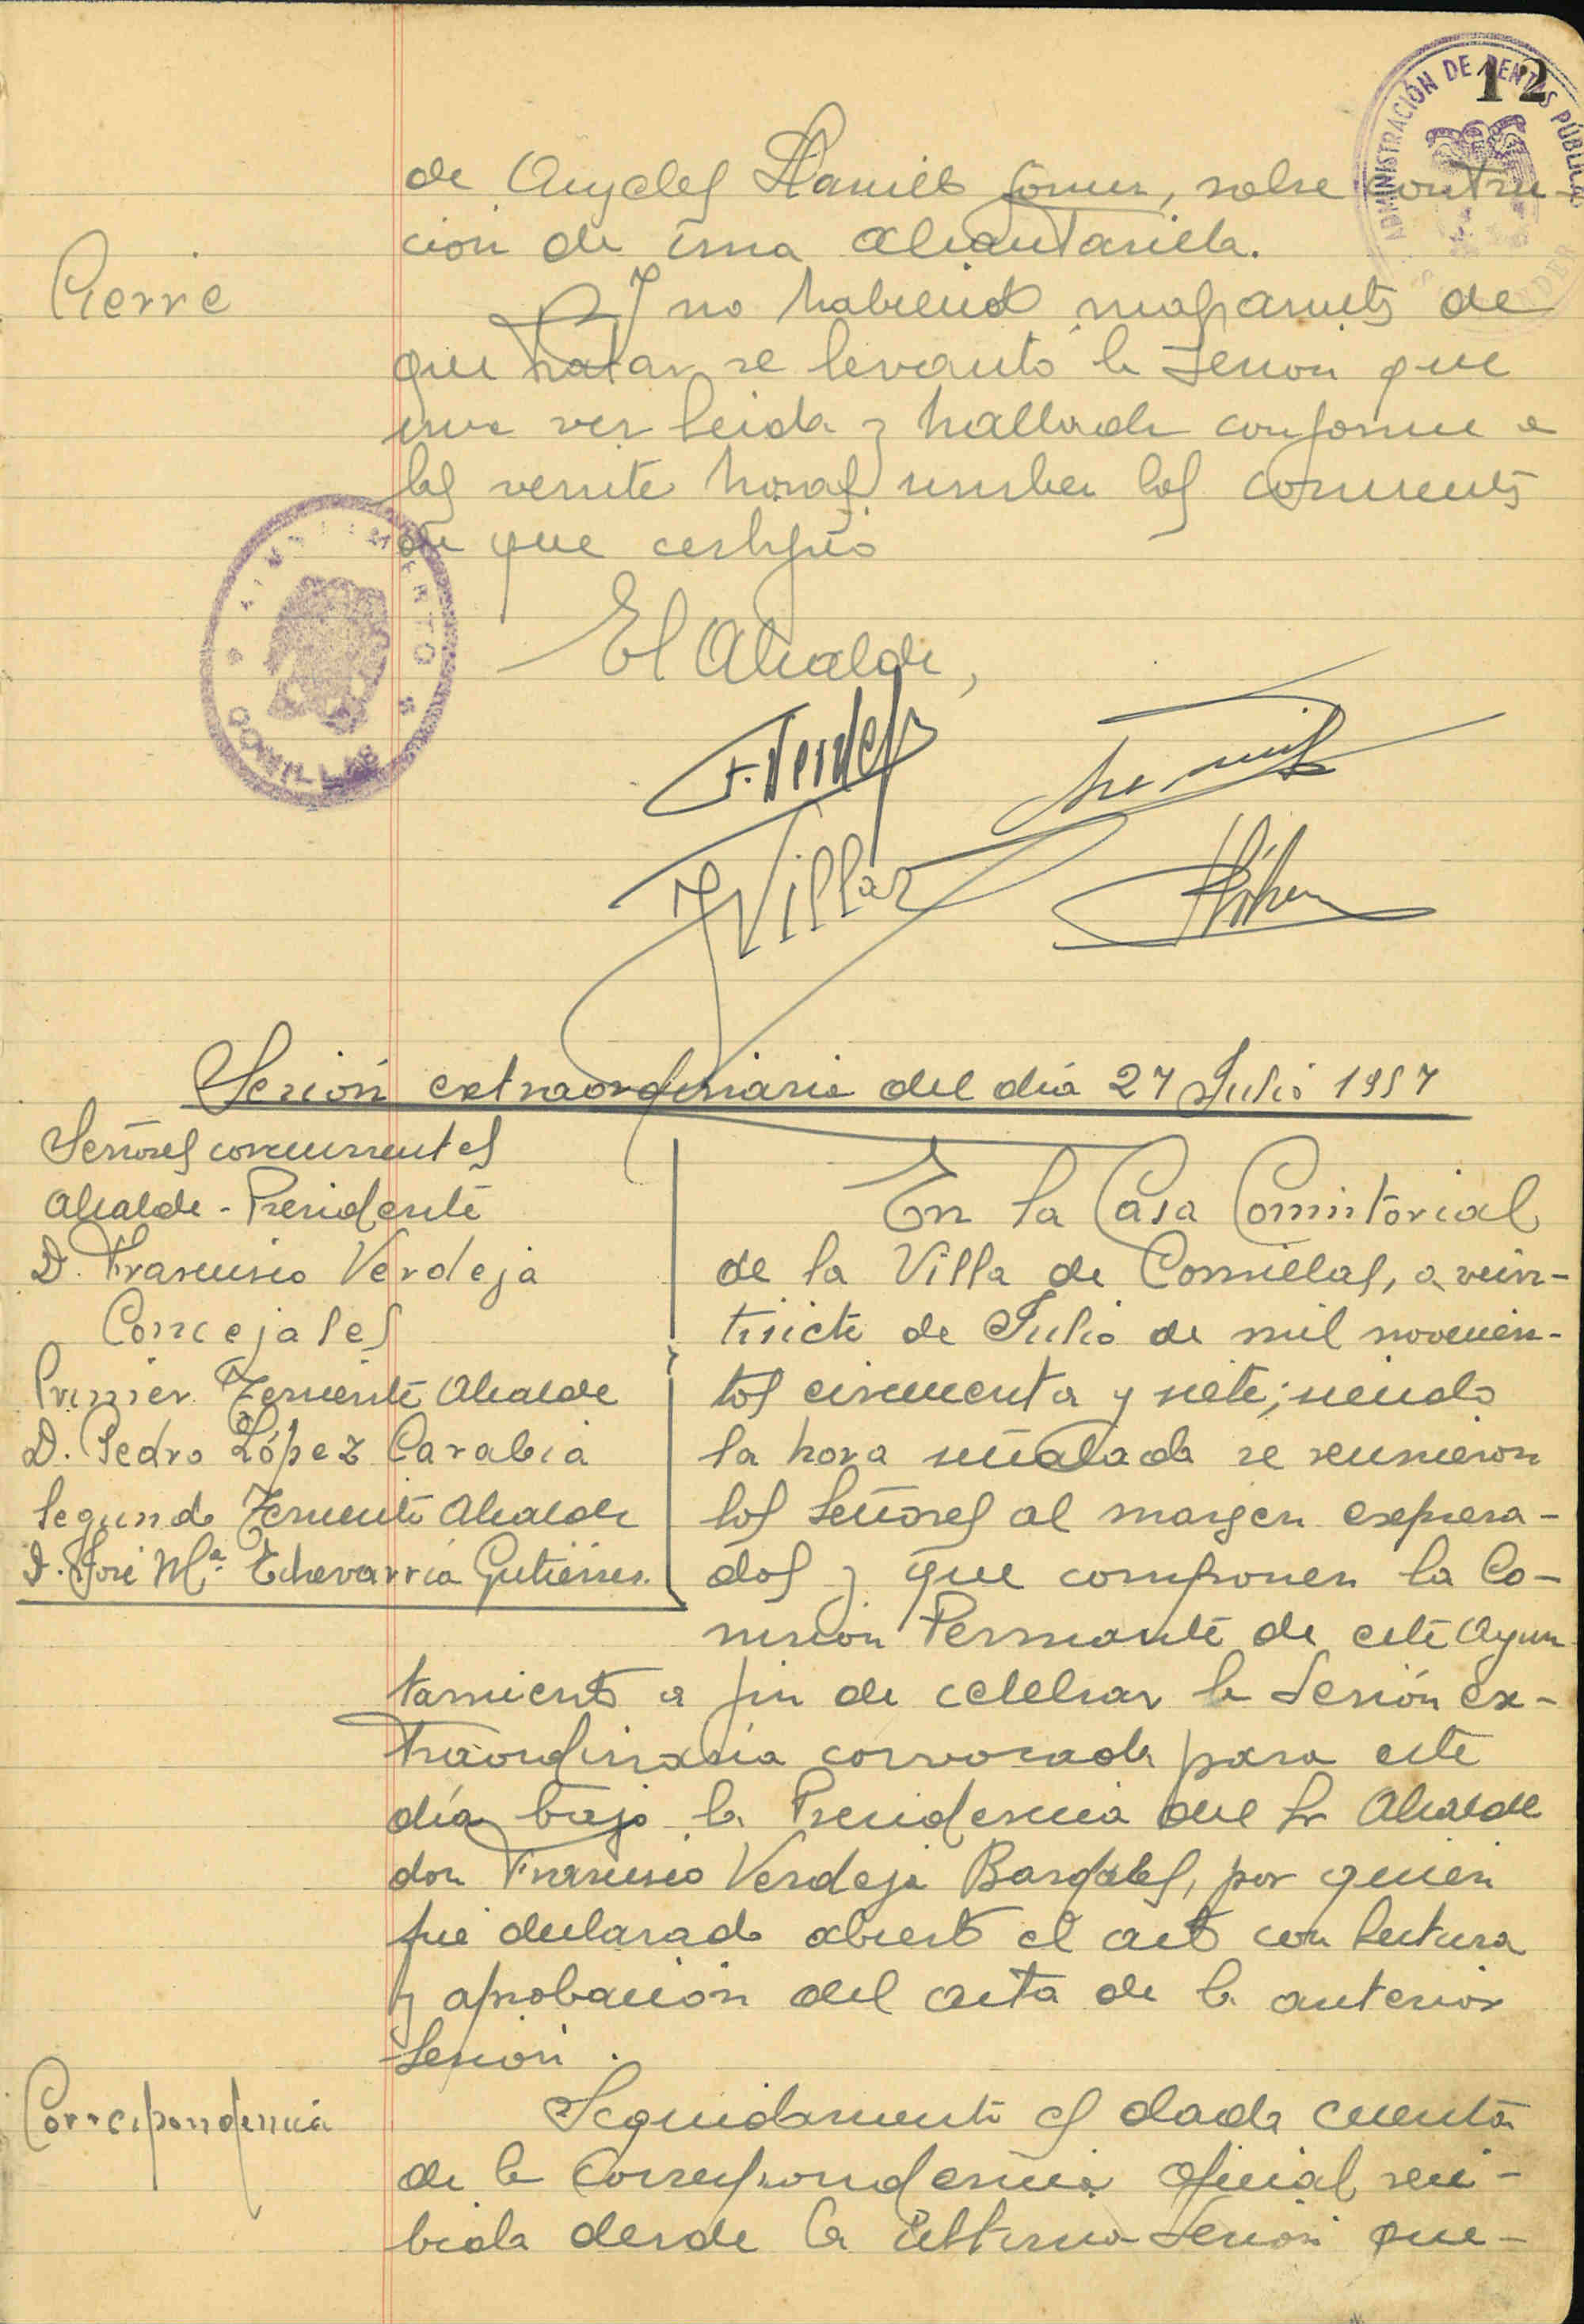 12
ADMINISTRACIÓN DE RENTAS PÚBLICAS
de Angeles Gomez, sobre contru-
ción de una alcantarilla.
Cierre
Y no habiendo mas asuntos de
que tratar se levantó la Sesion que
una vez leida y hallada conforme a
las veinte horas los concurrentes
de que certifico
AYUNTAMIENTO
COMILLAS
El Alcalde,
F. Verdeja
Villar
Sesión extraordinaria del día 27 Julio 1957
Señores concurrentes
Alcalde-Presidente
D. Francisco Verdeja
Concejales
Primer Teniente Alcalde
D. Pedro López Carabia
Segundo Teniente Alcalde
D. José Mª Echevarría Gutiérrez.
En la Casa Consistorial
de la Villa de Comillas, a vein-
tisiete de Julio de mil novecien-
tos cincuenta y siete; siendo
la hora señalada se reunieron
los Señores al margen expresa-
dos y que componen la Co-
mision Permanente de este Ayun
tamiento a fin de celebrar la Sesión ex-
traordinaria convocada para este
día bajo la Presidencia del Sr Alcalde
don Francisco Verdeja Bardales, por quien
fué declarado abierto el acto con lectura
y aprobación del acta de la anterior
Sesion.
Correspondencia
Seguidamente es dada cuenta
de la Correspondencia oficial reci-
bida desde la última Sesion que-